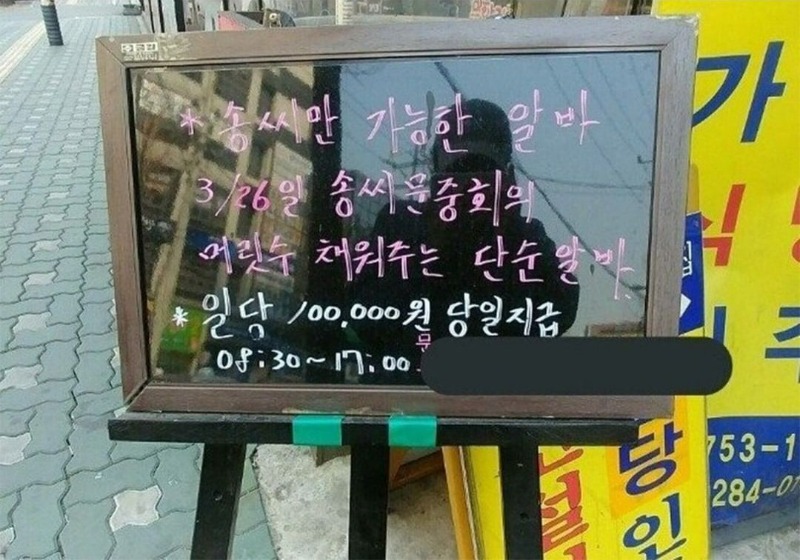 * 송씨만 가능한 알바
3/26일 송씨문중회의
머릿수 채워주는 단순알바.
* 일당 100,000원 당일지급
08:30~17:00
문
가
식당
주
당
인
753-1
284-0